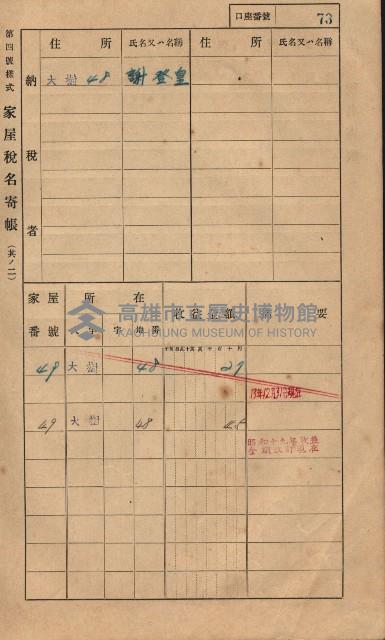 口座番號 73
第四號樣式 家屋稅名寄帳 (其ノ二)
納稅者
住所 氏名又ハ名稱 住所 氏名又ハ名稱
大樹 48 謝登皇
家屋番號 所在 收益金額 摘要
大字 字 地番
49 大樹 48 27
49 大樹 48 48
高雄市立歷史博物館
KAOHSIUNG MUSEUM OF HISTORY